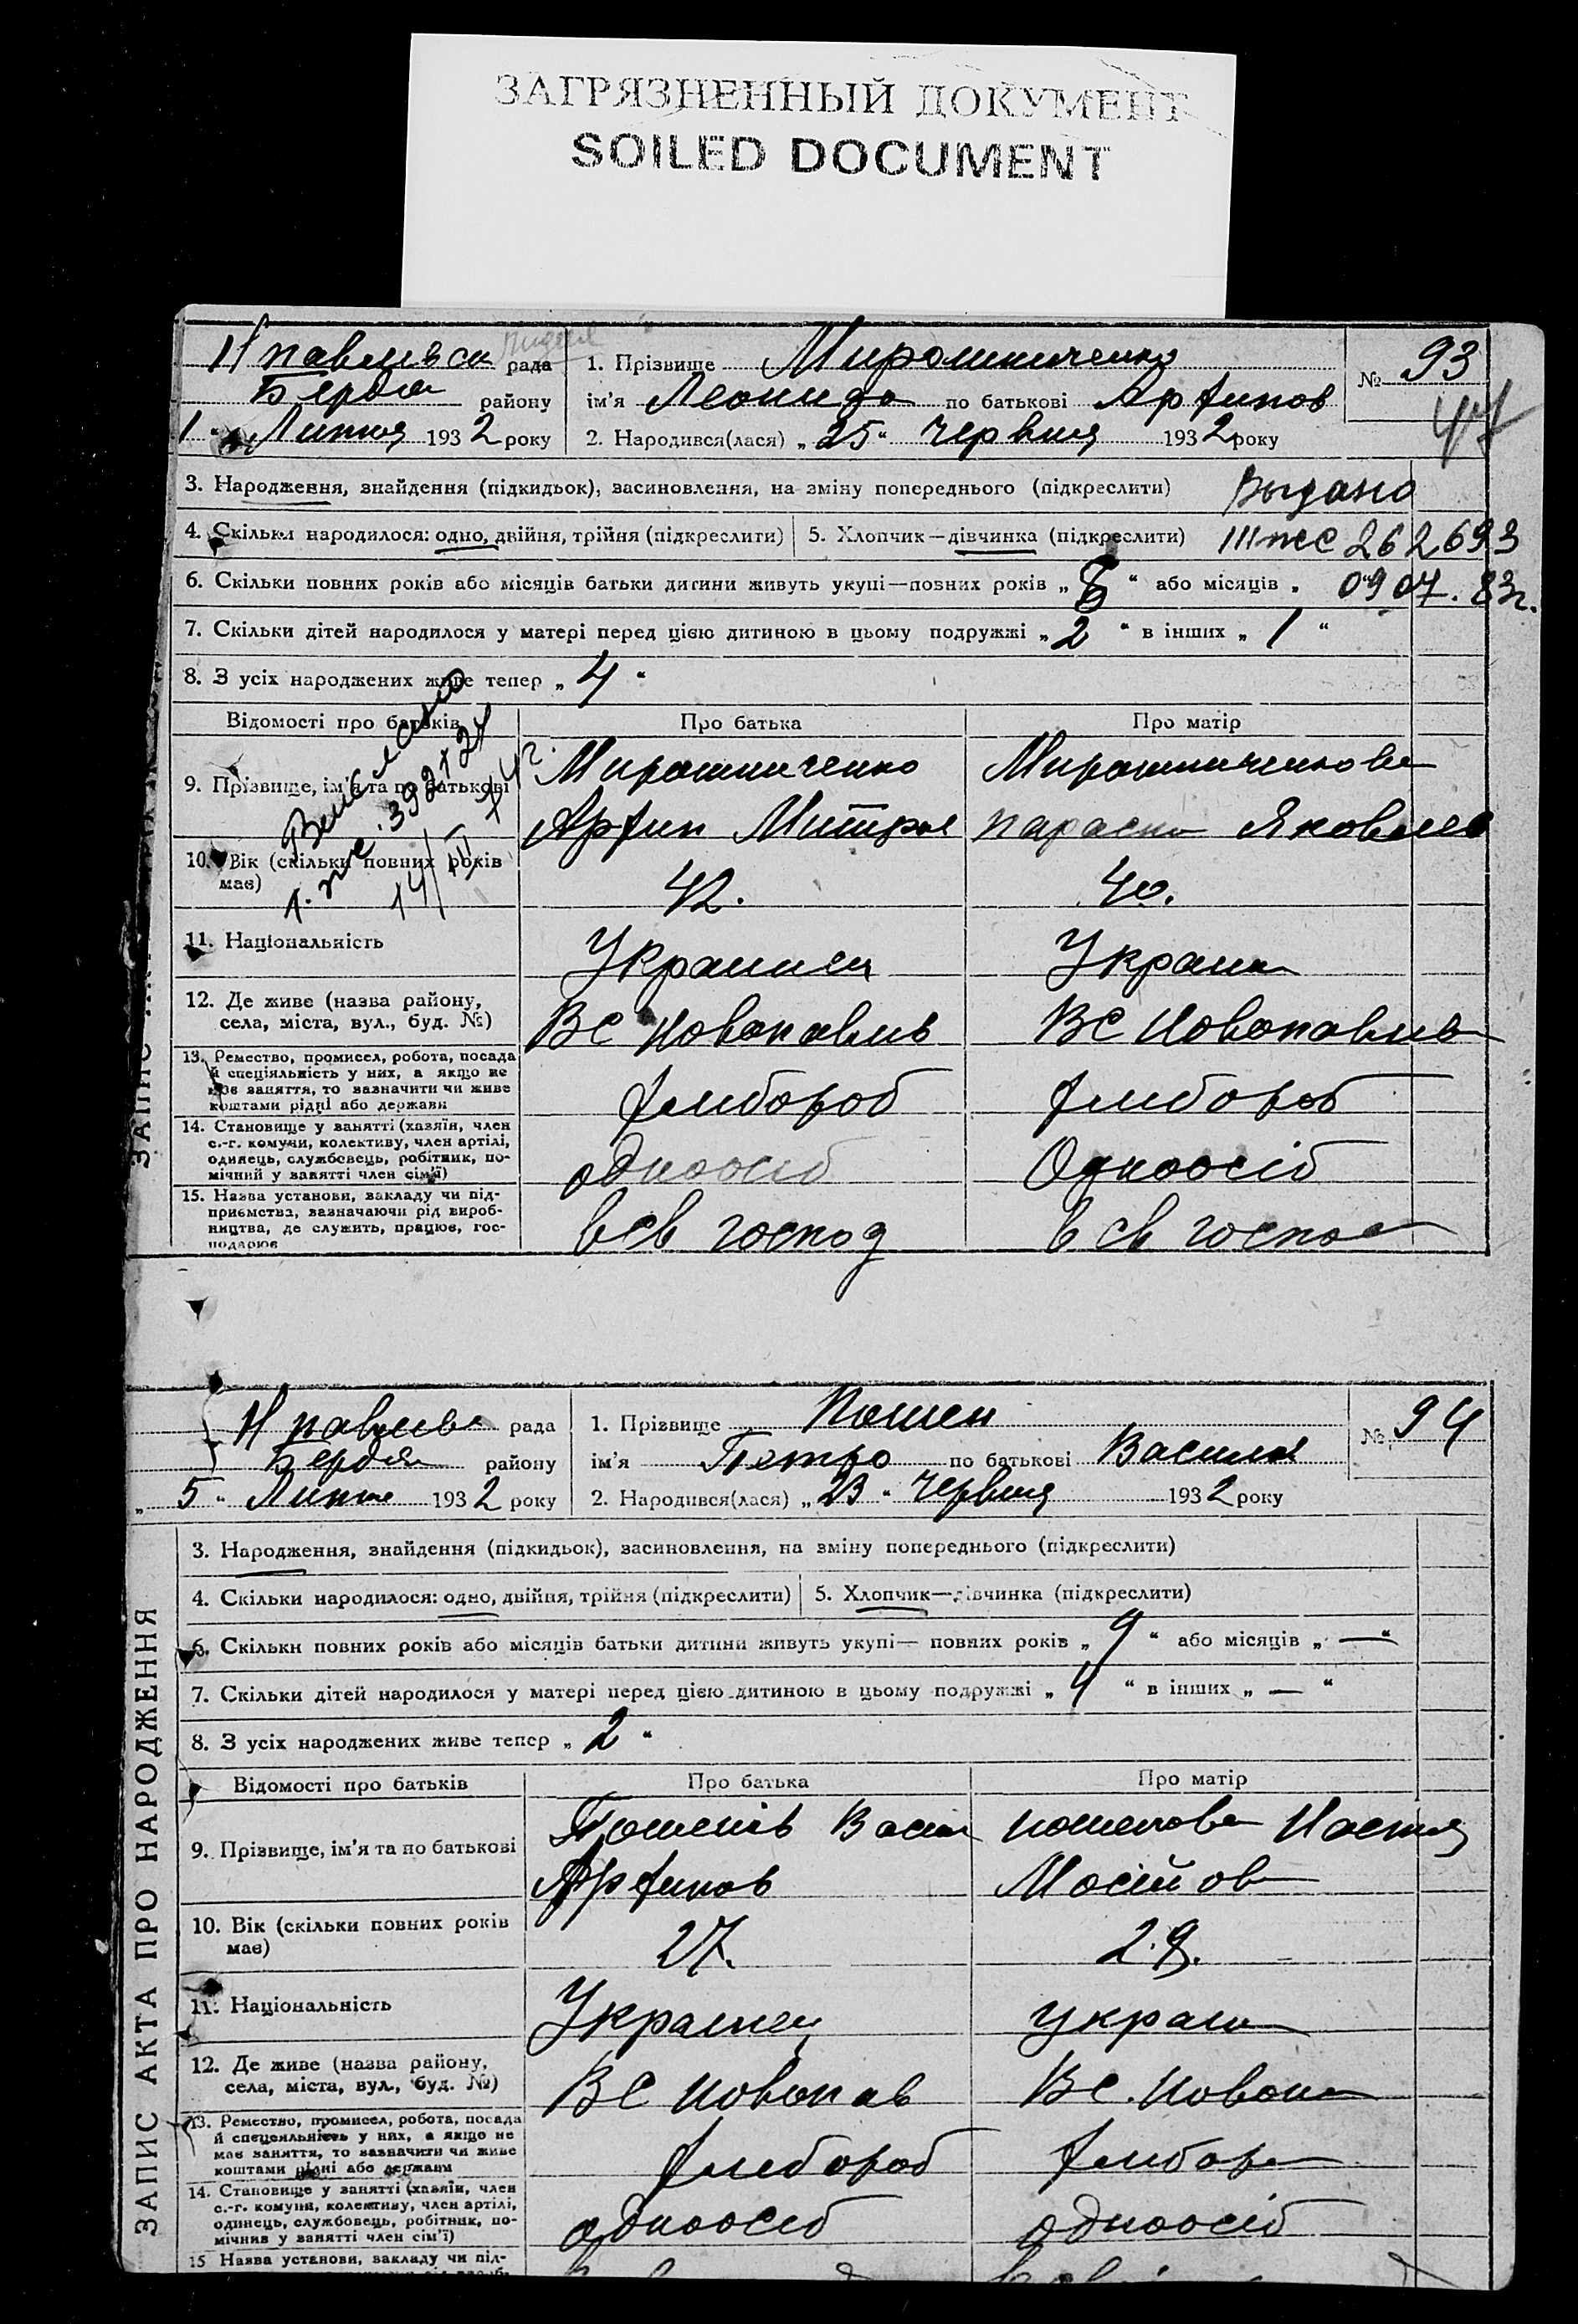 ЗАГРЯЗНЕННЫЙ ДОКУМЕНТ
SOILED DOCUMENT
Н павлівск рада
Бердян району
1 " Липня 1932 року
1. Прізвище Мирошниченко
ім'я Леонида по батькові Архипов
2. Народився(лася) „ 25 " червня 1932 року
№ 93
47
3. Народження, знайдення (підкидьок), засиновлення, на зміну попереднього (підкреслити)
Выдано
4. Скільки народилося: одно, двійня, трійня (підкреслити) 5. Хлопчик—дівчинка (підкреслити)
III жс 262693
6. Скільки повних років або місяців батьки дитини живуть укупі—повних років „ " або місяців „
09 07. 83г.
7. Скільки дітей народилося у матері перед цією дитиною в цьому подружжі „ 2 " в інших „ 1 "
8. З усіх народжених живе тепер „ 4 "
Відомості про батьків Про батька Про матір
9. Прізвище, ім'я та по батькові
Мирошниченко
Архип Митров
Мирошниченкова
Параска Яковлев
10. Вік (скільки повних років має)
42. 40.
11. Національність
Украинец Украин
12. Де живе (назва району, села, міста, вул., буд. №)
ВС Новопавлів ВС Новопавлів
13. Ремество, промисел, робота, посада
й спеціяльність у них, а якщо не
має заняття, то зазначити чи живе
коштами рідні або держави
хлибороб хлибороб
14. Становище у занятті (хазяїн, член
с.-г. комуни, колективу, член артілі,
одинець, службовець, робітник, по-
мічний у занятті член сім'ї)
одноосіб Одноосіб
15. Назва установи, закладу чи під-
приємства, зазначаючи рід вироб-
ництва, де служить, працює, гос-
подарює
в св господ в св госпо
Н павлівс рада
Бердян району
„ 5 " Липня 1932 року
1. Прізвище Пошен
ім'я Петро по батькові Василів
2. Народився(лася) „ 23 " Червня 1932 року
№ 94
3. Народження, знайдення (підкидьок), засиновлення, на зміну попереднього (підкреслити)
4. Скільки народилося: одно, двійня, трійня (підкреслити) 5. Хлопчик—дівчинка (підкреслити)
6. Скільки повних років або місяців батьки дитини живуть укупі— повних років „ 9 " або місяців „ — "
7. Скільки дітей народилося у матері перед цією дитиною в цьому подружжі „ 4 " в інших „ — "
8. З усіх народжених живе тепер „ 2 "
Відомості про батьків Про батька Про матір
9. Прізвище, ім'я та по батькові
Васил
Архипов
Настя
Мосійов
10. Вік (скільки повних років має)
27. 29.
11. Національність
Украинец украин
12. Де живе (назва району, села, міста, вул., буд. №)
ВС Новопав ВС. Новопа
13. Ремество, промисел, робота, посада
й спецеяльність у них, а якщо не
має заняття, то зазначити чи живе
коштами рідні або держави
хлибороб хлибор
14. Становище у занятті (хазяїн, член
с.-г. комуни, колективу, член артілі,
одинець, службовець, робітник, по-
мічния у занятті член сім'ї)
одноосіб одноосіб
15 Назва установи, закладу чи під-
ЗАПИС АКТА ПРО НАРОДЖЕННЯ